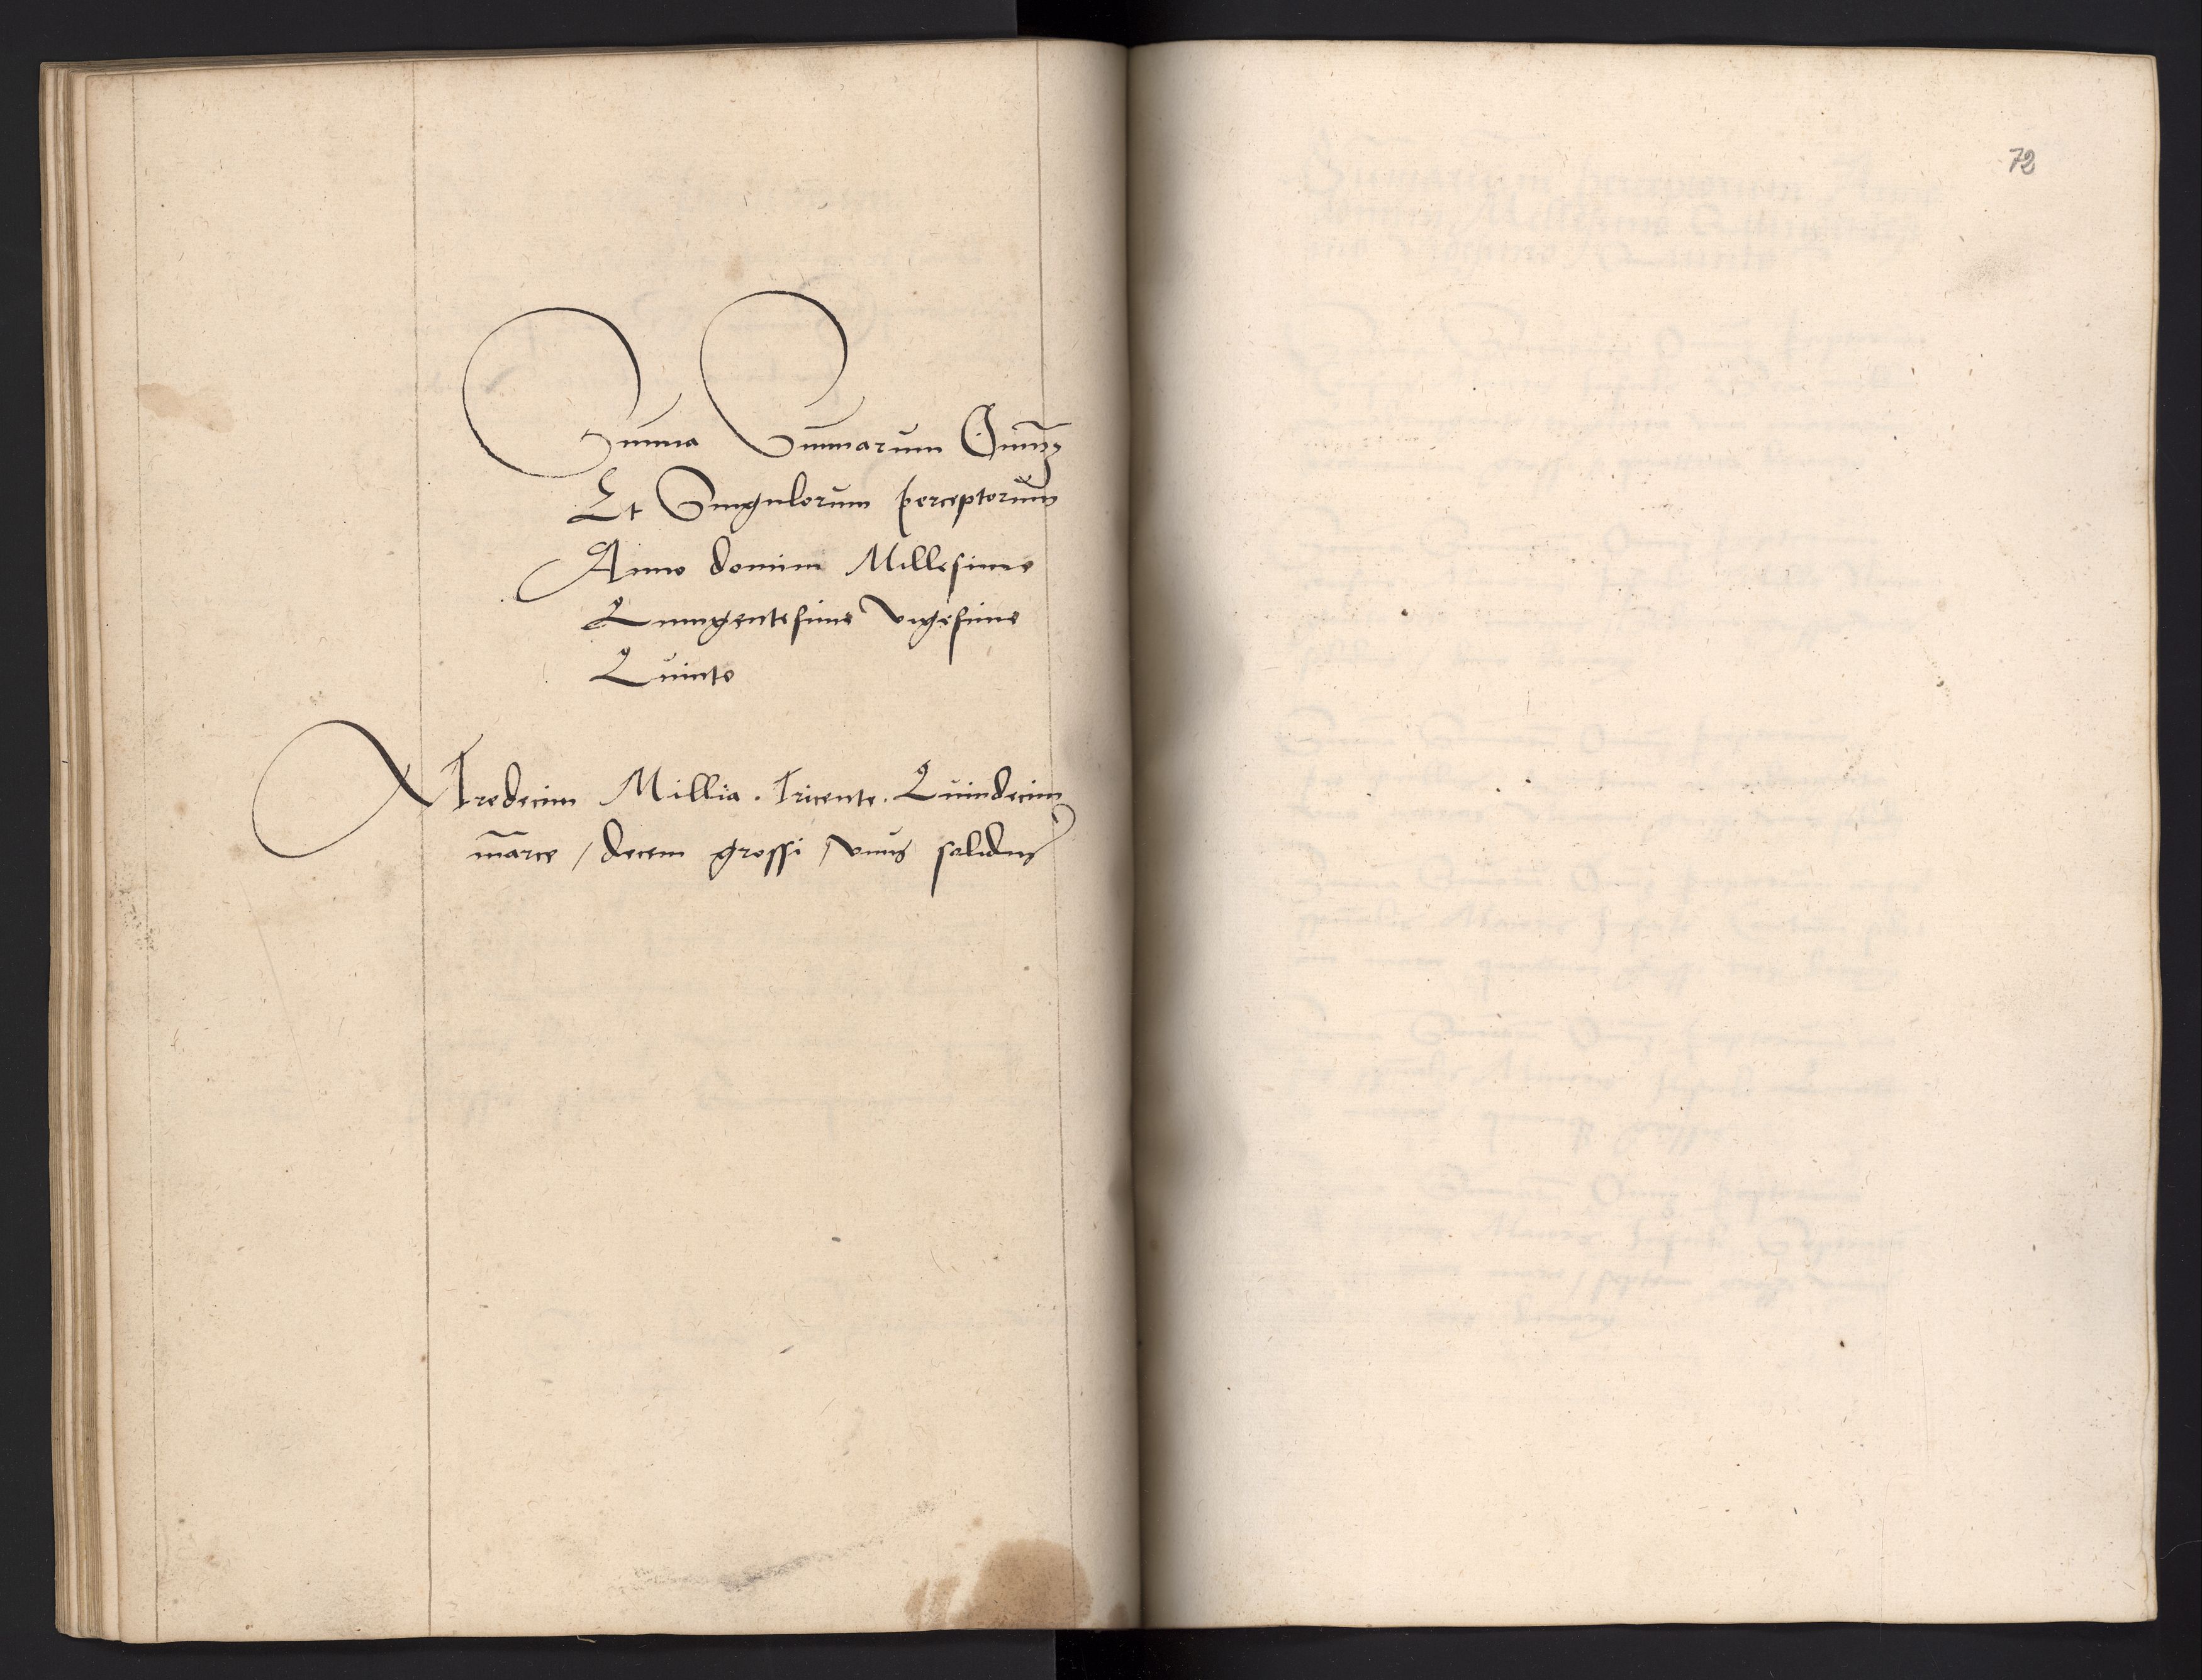 Summa Summarum Omnꝫ
Et Singulorum perceptorum
Anno domini Millesimo
Quingentesimo vigesimo
Quinto
Tredecim Millia . Tricente . Quindecim
marce / decem grossi / vnus solidus
72